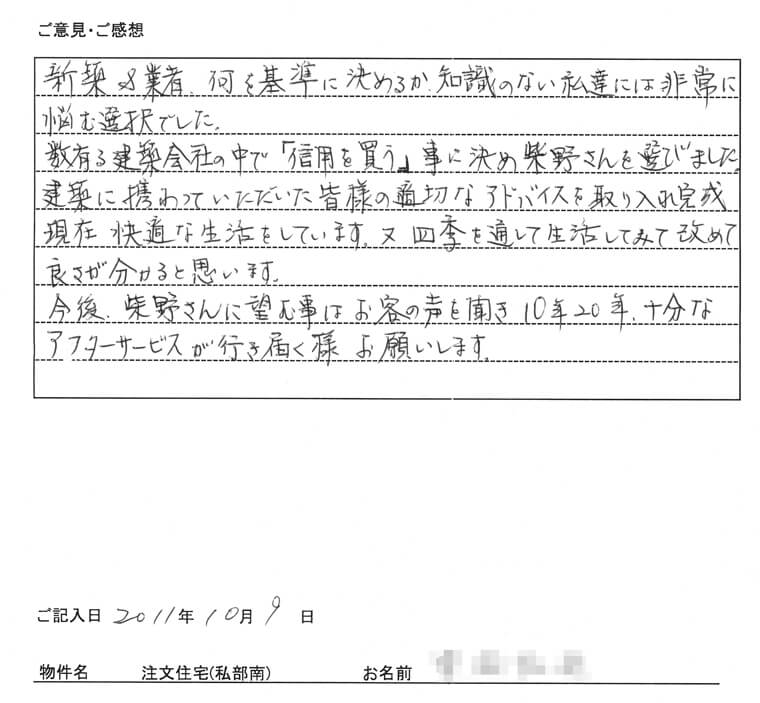 ご意見・ご感想
新築&業者、何を基準に決めるか、知識のない私達には非常に
悩む選択でした。
数有る建築会社の中で「信用を買う」事に決め柴野さんを選びました。
建築に携わっていただいた皆様の適切なアドバイスを取り入れ完成
現在 快適な生活をしています。又 四季を通して生活してみて改めて
良さが分かると思います。
今後、柴野さんに望む事はお客の声を聞き10年20年、十分な
アフターサービスが行き届く様 お願いします。
ご記入日 2011年 10月 9日
物件名 注文住宅(私部南) お名前